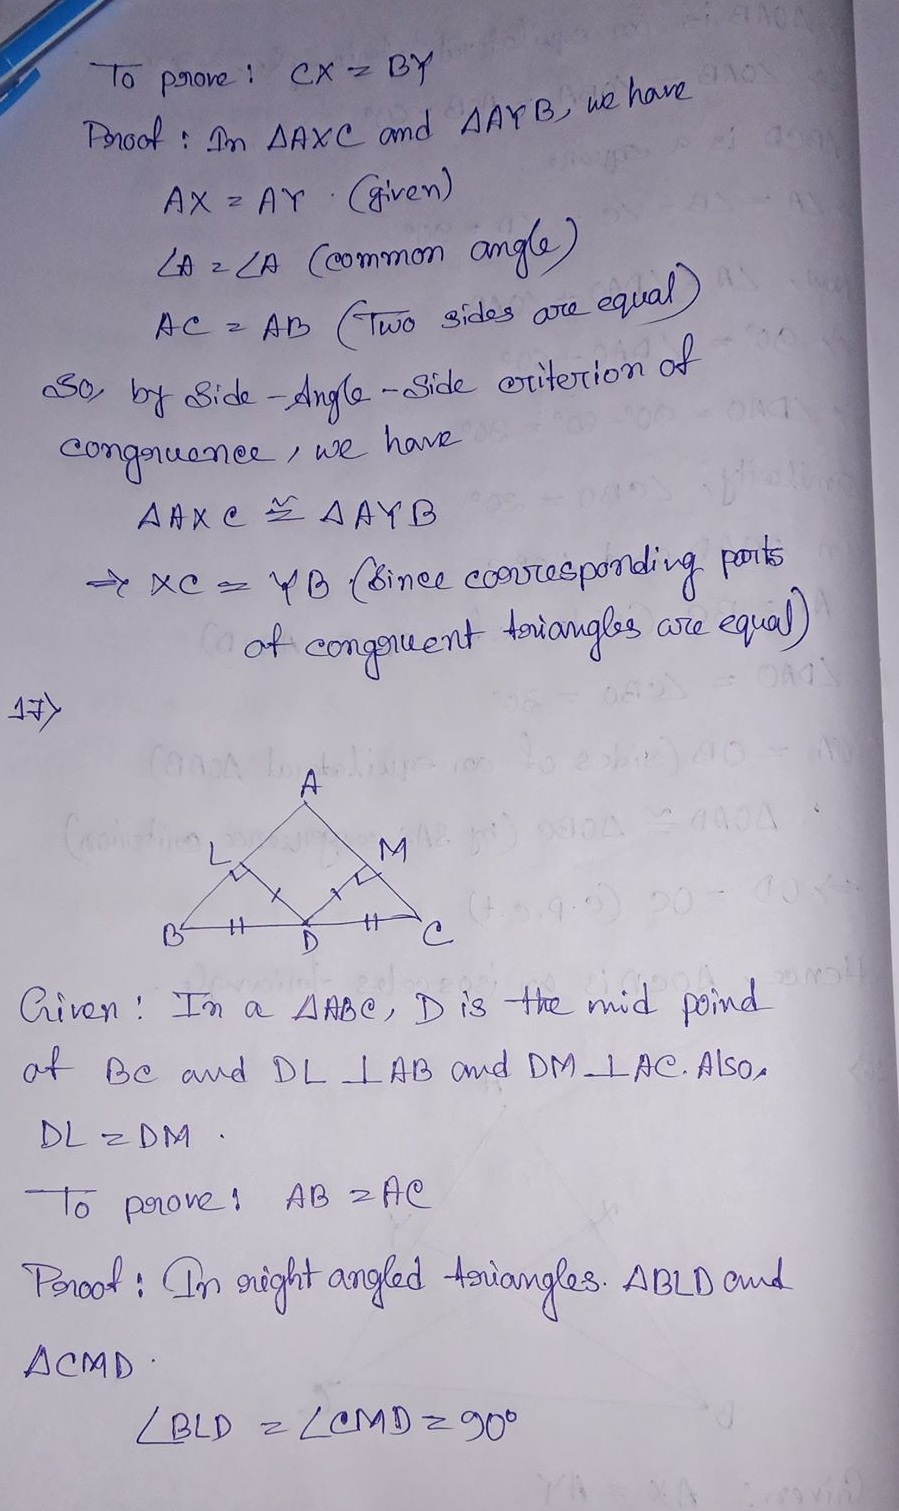 To prove : CX = BY
Proof : In ΔAXC and ΔAYB, we have
AX = AY . (given)
∠A = ∠A (common angle)
AC = AB (Two sides are equal)
So, by Side-Angle-Side criterion of
congruence, we have
ΔAXC ≅ ΔAYB
⇒ XC = YB (Since corresponding parts
of congruent triangles are equal)
17)
A
L M
B D C
Given : In a ΔABC, D is the mid poind
of BC and DL ⊥ AB and DM ⊥ AC. Also,
DL = DM .
To prove : AB = AC
Proof : In right angled triangles. ΔBLD and
ΔCMD .
∠BLD = ∠CMD = 90°